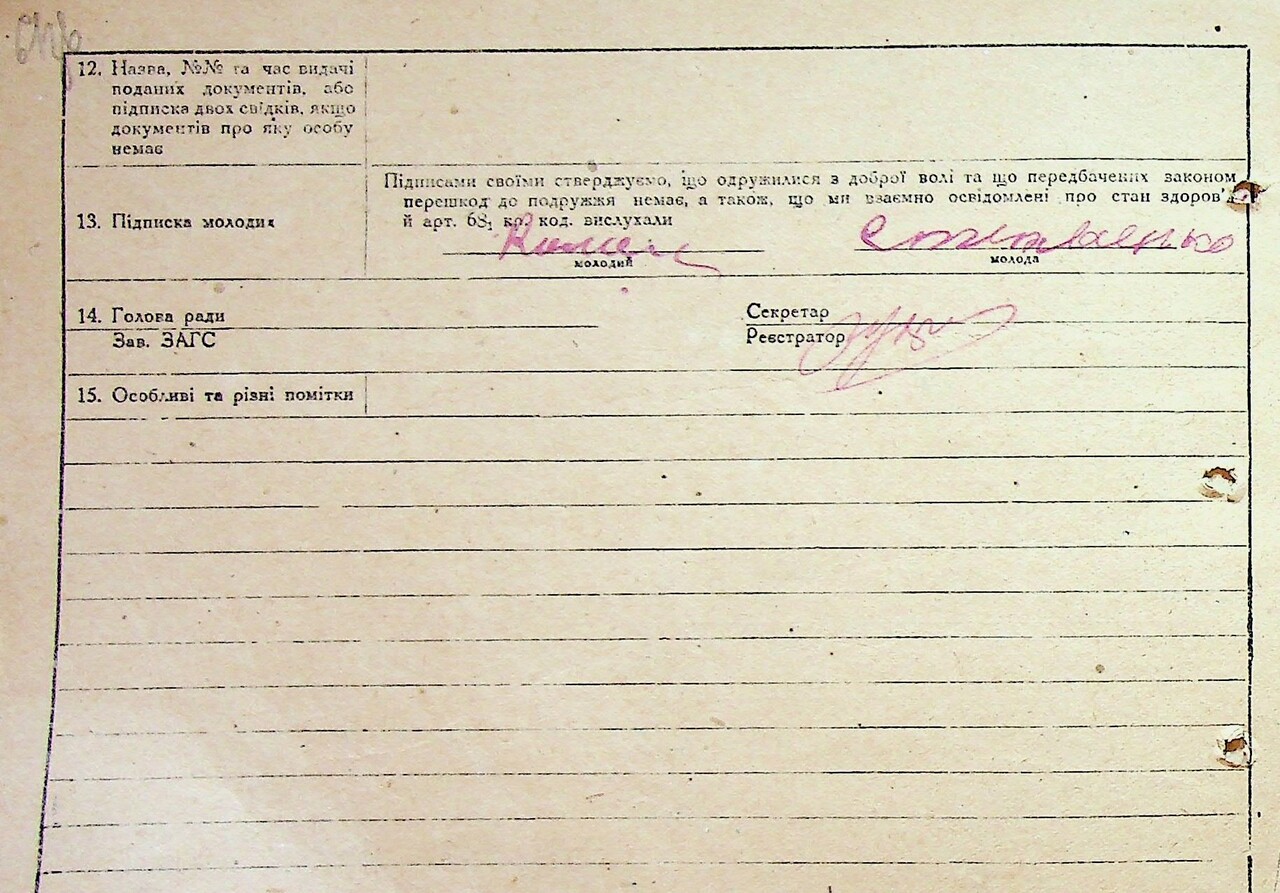 12. Назва, №№ та час видачі
поданих документів, або
підписка двох свідків, якщо
документів про яку особу
немає
13. Підписка молодих
Підписами своїми стверджуємо, що одружилися з доброї волі та що передбачених законом
перешкод до подружжя немає, а також, що ми взаємно освідомлені про стан здоров'я
й арт. 68, кр. код. вислухали
молодий молода
14. Голова ради Секретар
Зав. ЗАГС Реєстратор
15. Особливі та різні помітки